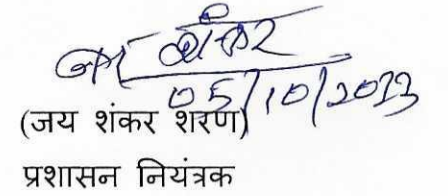 जय शंकर
05/10/2023
(जय शंकर शरण)
प्रशासन नियंत्रक